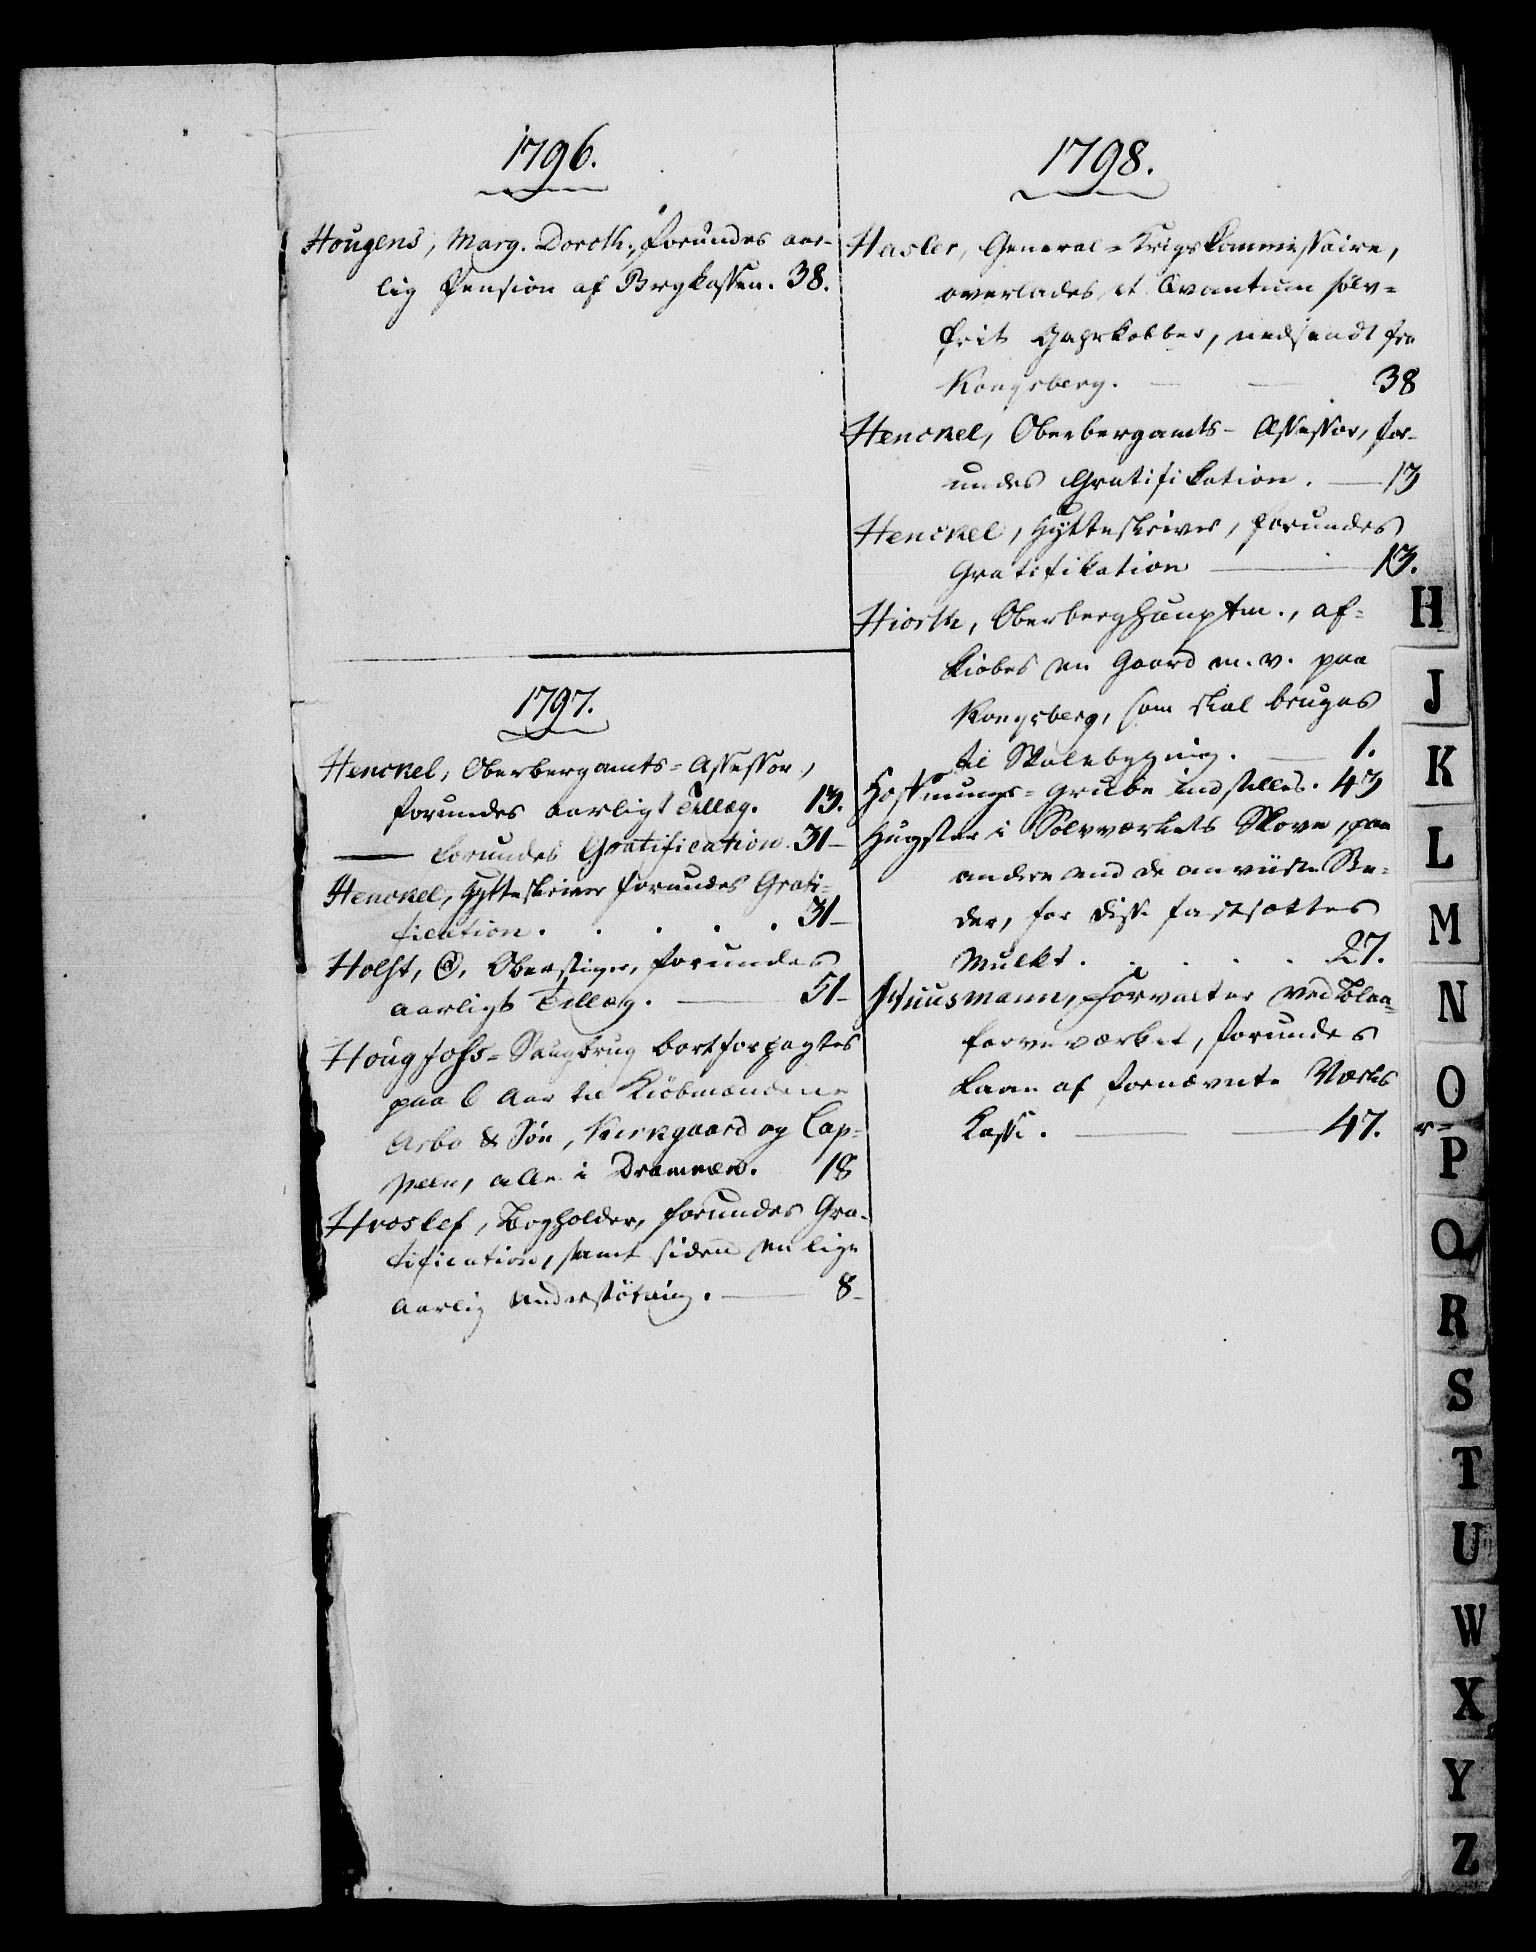 1796.
Hougens, Marg. Doroth., forundes aar-
lig Pension af Brgkassen. 38.
1797.
Henckel, Oberbergamts-Assessor,
forundes aarligt Tillæg. 13.
— forundes Gratification. 31-
Henckel, Hytteskriver forundes Grati-
fication. . . . . 31-
Holst, Oberstiger, forundes
aarligt Tillæg. — 51-
Hougfoss-Saugbrug bortforpagtes
paa 6 Aar til Kiöbmændene
Arbo & Sön, Kirkgaard og Cap-
pelen, alle i Drammen. 18
Hroslef, Bogholder, forundes Gra-
tification, samt siden en lige
aarlig Understötning. — 8-
1798.
Hasler, General-Krigskommissaire,
overlades et Qvantum sölv-
frit Gahrkobber, nedsendt fra
Kongsberg. — 38
Henckel, Oberbergamts-Assessor, for-
undes Gratifikation. — 13
Henckel, Hytteskriver, forundes
Gratifikation — 13.
Hiorth, Oberberghauptm., af-
kiöbes en Gaard m. v. paa
Kongsberg, som skal bruges
til Skolebygning. — 1.
Hoffnungs-Grube indstilles. 43
Hugster i Sölvværkets Skove, paa
andre end de anviiste Ste-
der, for disse fastsættes
Mulkt. . . . . 27.
Huusmann, Forvalter ved Blaa-
farveværket, forundes
Laan af fornævnte Værks
Kasse. — 47.
H
J
K
L
M
N
O
P
Q
R
S
T
U
W
X
Y
Z